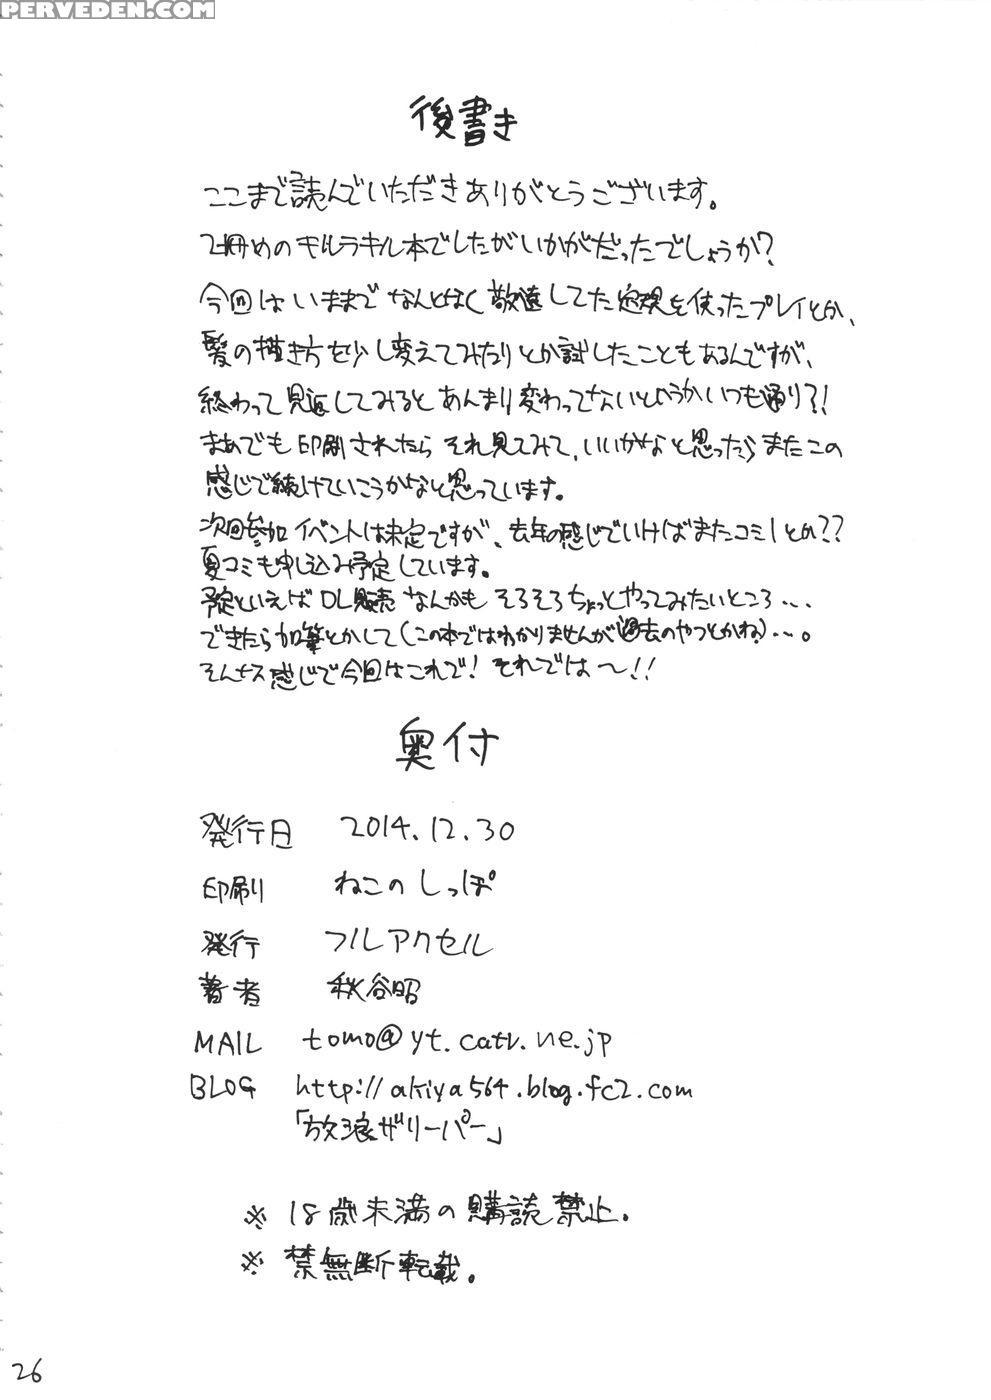 PERVEDEN.COM
後書き
ここまで読んでいただきありがとうございます。
2冊めのキルラキル本でしたがいかがだったでしょうか?
今回はいままでなんとなく敬遠してた定規を使ったプレイとか、
髪の描き方を少し変えてみたりとか試したこともあるんですが、
終わって見返してみるとあんまり変わってないというかいつも通り?!
まあでも印刷されたらそれ見てみて、いいかなと思ったらまたこの
感じで続けていこうかなと思っています。
次回参加イベントは未定ですが、去年の感じでいけばまたコミ1とか??
夏コミも申し込み予定しています。
予定といえばDL販売なんかもそろそろちょっとやってみたいところ...
できたら加筆とかして(この本ではわかりませんが過去のやつとかね)...。
そんなス感じで今回はこれで! それでは〜!!
奥付
発行日 2014.12.30
印刷 ねこのしっぽ
発行 フルアクセル
著者 秋谷昭
MAIL tomo@yt.catv.ne.jp
BLOG http://akiya564.blog.fc2.com
「放浪ザリーパー」
※ 18歳未満の購読禁止.
※ 禁無断転載.
26